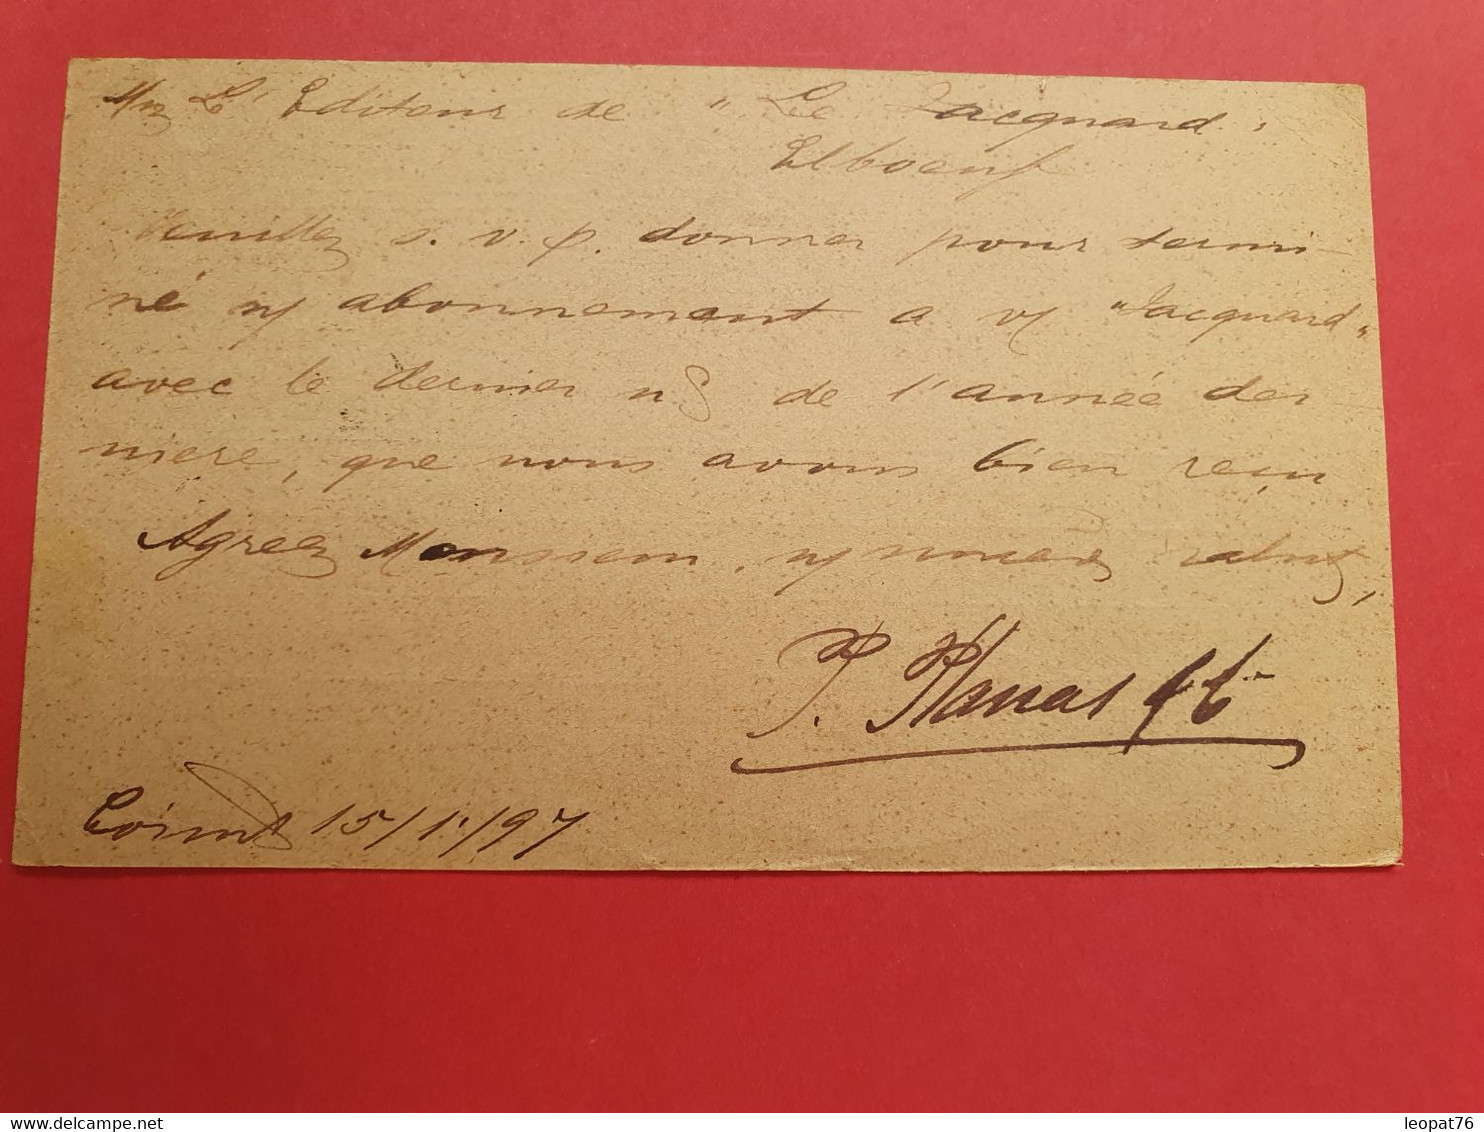 Mr L'Editeur de "Le Jacquard"
Elboeuf
Veuillez s. v. p. donner pour termi-
né n/ abonnement a v/ "Jacquard"
avec le dernier nº de l'année der-
niere, que nous avons bien reçu
Agréez Monsieur, n/ sincères salut,
P. Planas
15/1./97
leopat76